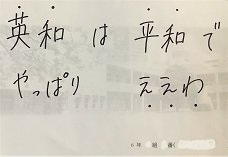 英和は平和で
やっぱりええわ
6年 組 番(